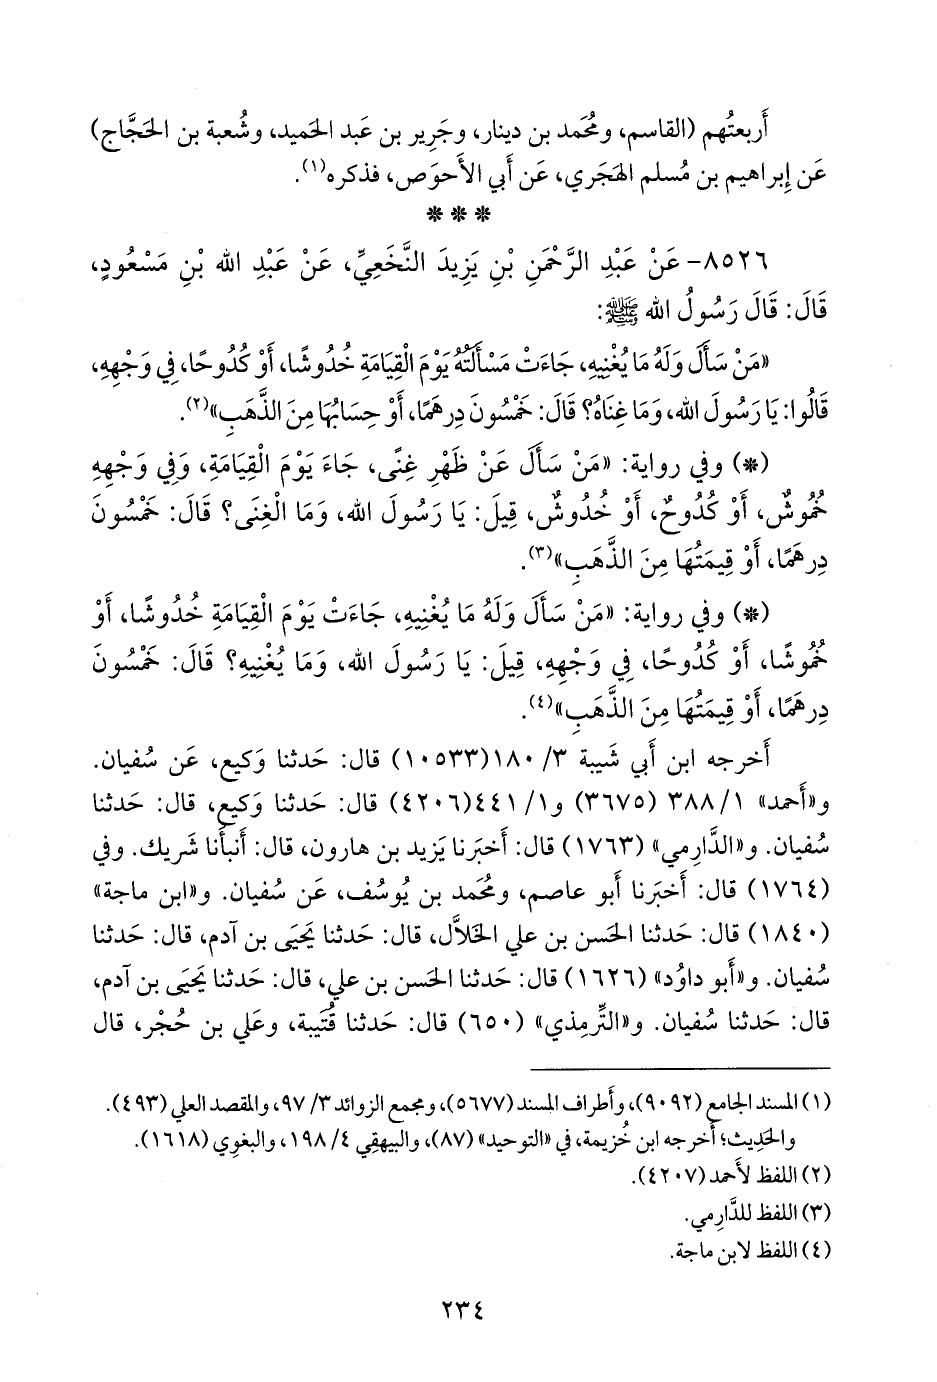 أَربعتُهم (القاسم، ومُحَمد بن دينار، وجَرِير بن عَبد الحَميد، وشُعبة بن الحَجَّاج)
عَن إِبراهيم بن مُسلم الهَجَري، عَن أَبي الأَحوَص، فذكره(١).
* * *
٨٥٢٦- عَنْ عَبْدِ الرَّحْمَنِ بْنِ يَزِيدَ النَّخَعِيِّ، عَنْ عَبْدِ الله بْنِ مَسْعُودٍ،
قَالَ: قَالَ رَسُولُ الله ﷺ:
«مَنْ سَأَلَ وَلَهُ مَا يُغْنِيهِ، جَاءَتْ مَسْأَلَتُهُ يَوْمَ الْقِيَامَةِ خُدُوشًا، أَوْ كُدُوحًا، فِي وَجْهِهِ،
قَالُوا: يَا رَسُولَ الله، وَمَا غِنَاهُ؟ قَالَ: خَمْسُونَ دِرهَمًا، أَوْ حِسَابُهَا مِنَ الذَّهَبِ»(٢).
(*) وفي رواية: «مَنْ سَأَلَ عَنْ ظَهْرِ غِنًى، جَاءَ يَوْمَ الْقِيَامَةِ، وَفِي وَجْهِهِ
خُمُوشٌ، أَوْ كُدُوحٌ، أَوْ خُدُوشٌ، قِيلَ: يَا رَسُولَ الله، وَمَا الْغِنَى؟ قَالَ: خَمْسُونَ
دِرهَمًا، أَوْ قِيمَتُهَا مِنَ الذَّهَبِ»(٣).
(*) وفي رواية: «مَنْ سَأَلَ وَلَهُ مَا يُغْنِيهِ، جَاءَتْ يَوْمَ الْقِيَامَةِ خُدُوشًا، أَوْ
خُمُوشًا، أَوْ كُدُوحًا، فِي وَجْهِهِ، قِيلَ: يَا رَسُولَ الله، وَمَا يُغْنِيهِ؟ قَالَ: خَمْسُونَ
دِرهَمًا، أَوْ قِيمَتُهَا مِنَ الذَّهَبِ»(٤).
أَخرجه ابن أَبي شَيبة ٣/ ١٨٠(١٠٥٣٣) قال: حَدثنا وَكيع، عَن سُفيان.
و«أَحمد» ١/ ٣٨٨ (٣٦٧٥) و١/ ٤٤١(٤٢٠٦) قال: حَدثنا وَكيع، قال: حَدثنا
سُفيان. و«الدَّارِمي» (١٧٦٣) قال: أَخبَرنا يَزيد بن هارون، قال: أَنبأَنا شَريك. وفي
(١٧٦٤) قال: أَخبَرنا أَبو عاصم، ومُحَمد بن يُوسُف، عَن سُفيان. و«ابن ماجة»
(١٨٤٠) قال: حَدثنا الحَسن بن علي الخَلاَّل، قال: حَدثنا يَحيَى بن آدم، قال: حَدثنا
سُفيان. و«أَبو داوُد» (١٦٢٦) قال: حَدثنا الحَسن بن علي، قال: حَدثنا يَحيَى بن آدم،
قال: حَدثنا سُفيان. و«التِّرمِذي» (٦٥٠) قال: حَدثنا قُتَيبة، وعَلي بن حُجْر، قال
(١) المسند الجامع (٩٠٩٢)، وأَطراف المسند (٥٦٧٧)، ومجمع الزوائد ٣/ ٩٧، والمقصد العلي (٤٩٣).
والحَدِيث؛ أَخرجه ابن خُزيمة، في «التوحيد» (٨٧)، والبيهقِي ٤/ ١٩٨، والبغوِي (١٦١٨).
(٢) اللفظ لأَحمد (٤٢٠٧).
(٣) اللفظ للدَّارِمي.
(٤) اللفظ لابن ماجة.
٢٣٤